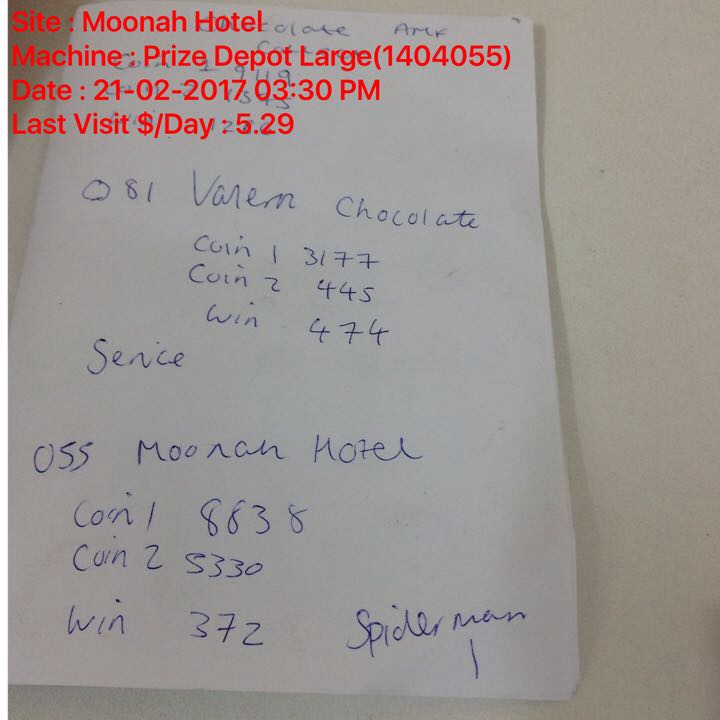 Site : Moonah Hotel
Machine : Prize Depot Large(1404055)
Date : 21-02-2017 03:30 PM
Last Visit $/Day : 5.29
Chocolate AMF
081 Valern Chocolate
Coin 1 3177
Coin 2 445
Win 474
Service
055 Moonah Hotel
Coin 1 8838
Coin 2 5330
Win 372 Spiderman
1